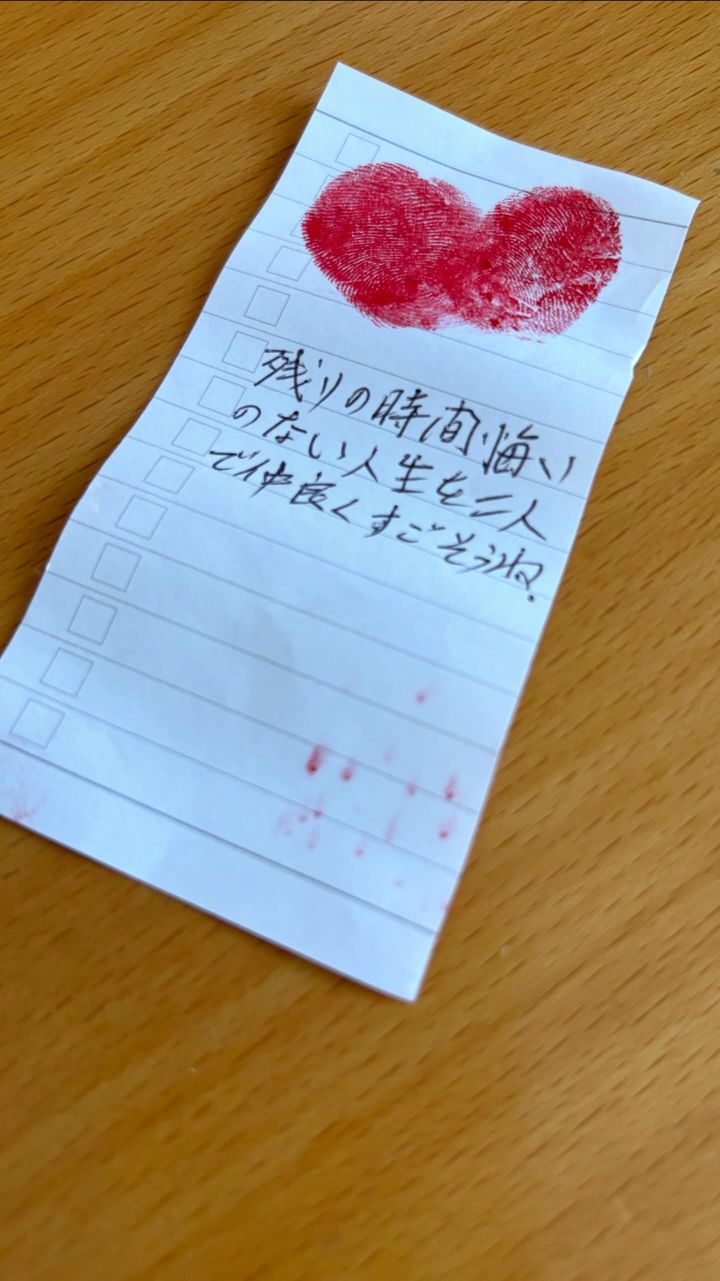 残りの時間悔い
のない人生を二人
で仲良くすごそうね.